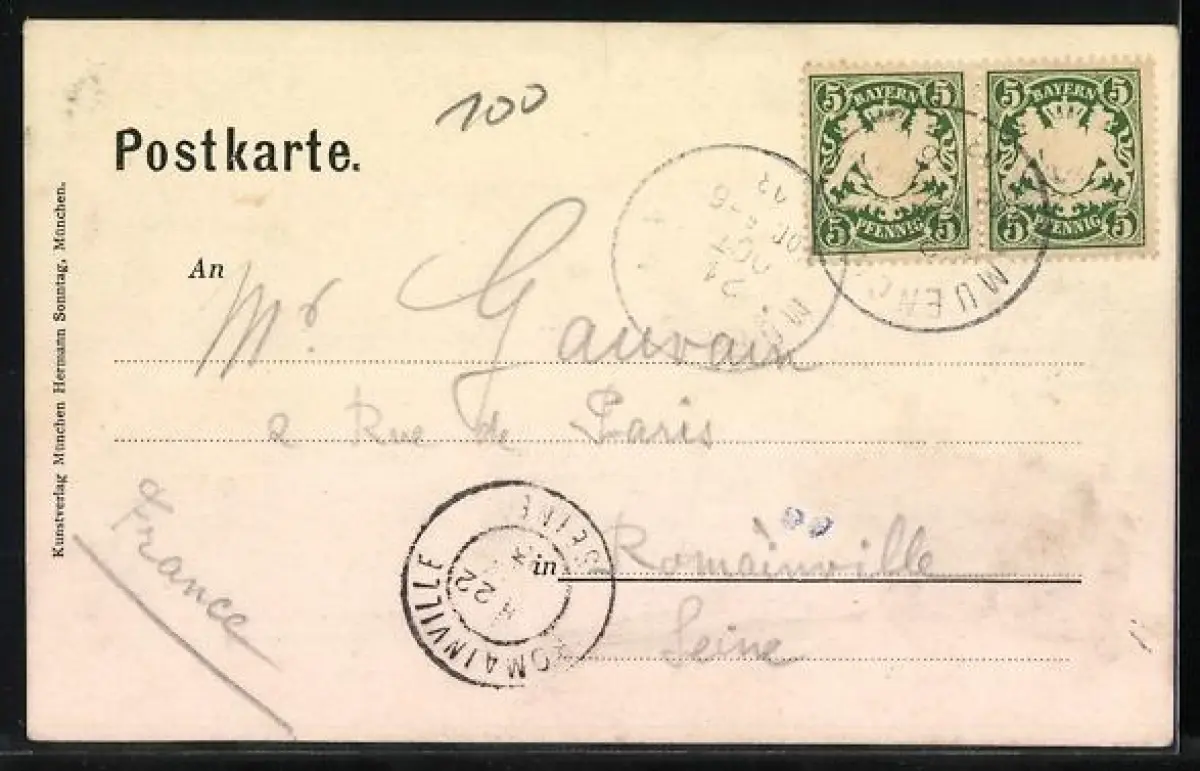 100
Postkarte.
5 BAYERN 5
5 PFENNIG 5
5 BAYERN 5
5 PFENNIG 5
MUENC
21
OCT
5-6
12
An
Mr Gauvain
2 Rue de Paris
in Romainville
Seine
France
ROMAINVILLE
SEINE
22
Kunstverlag München Hermann Sonntag, München.